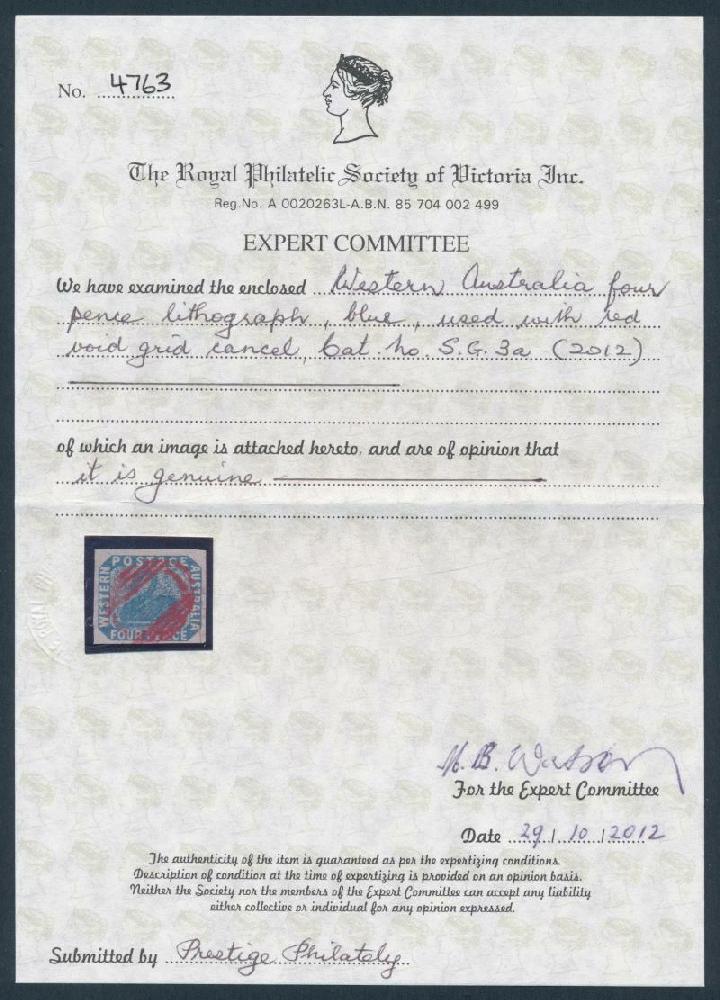 No. 4763
The Royal Philatelic Society of Victoria Inc.
Reg.No. A 0020263L-A.B.N. 85 704 002 499
EXPERT COMMITTEE
We have examined the enclosed Western Australia four
pence lithograph, blue, used with red
void grid cancel, Cat no. S.G. 3a (2012)
of which an image is attached hereto, and are of opinion that
it is genuine
POSTAGE
WESTERN
AUSTRALIA
FOUR PENCE
W. B. Watson
For the Expert Committee
Date 29/10/2012
The authenticity of the item is guaranteed as per the expertizing conditions.
Description of condition at the time of expertizing is provided on an opinion basis.
Neither the Society nor the members of the Expert Committee can accept any liability
either collective or individual for any opinion expressed.
Submitted by Prestige Philately